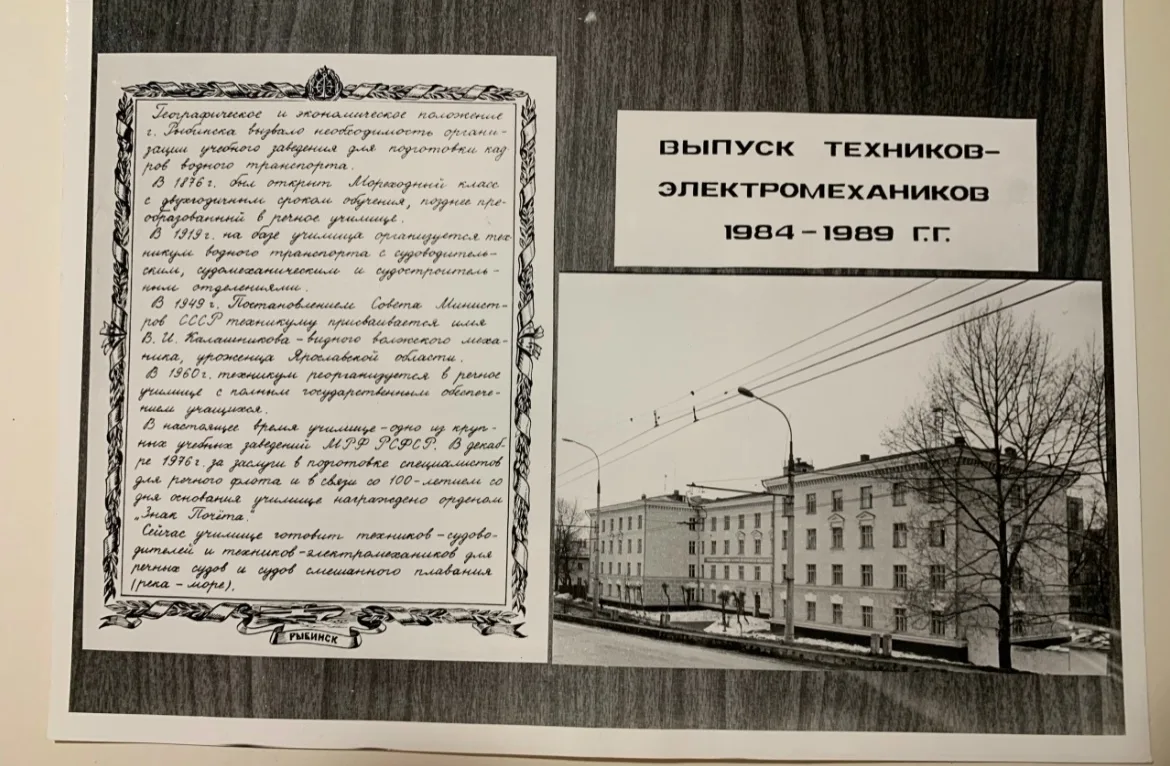 Географическое и экономическое положение
г. Рыбинска вызвало необходимость органи-
зации учебного заведения для подготовки кад
ров водного транспорта.
В 1876 г. был открыт Мореходный класс
с двухгодичным сроком обучения, позднее пре-
образованный в речное училище.
В 1919 г. на базе училища организуется тех
никум водного транспорта с судоводитель-
ским, судомеханическим и судостроитель-
ным отделениями.
В 1949 г. Постановлением Совета Минист-
ров СССР техникуму присваивается имя
В. И. Калашникова - видного волжского меха-
ника, уроженца Ярославской области.
В 1960 г. техникум реорганизуется в речное
училище с полным государственным обеспече-
нием учащихся.
В настоящее время училище - одно из круп-
ных учебных заведений МРФ РСФСР. В декаб-
ре 1976 г. за заслуги в подготовке специалистов
для речного флота и в связи со 100-летием со
дня основания училище награждено орденом
„Знак Почёта".
Сейчас училище готовит техников-судово-
дителей и техников-электромехаников для
речных судов и судов смешанного плавания
(река - море).
РЫБИНСК
ВЫПУСК ТЕХНИКОВ-
ЭЛЕКТРОМЕХАНИКОВ
1984-1989 Г.Г.